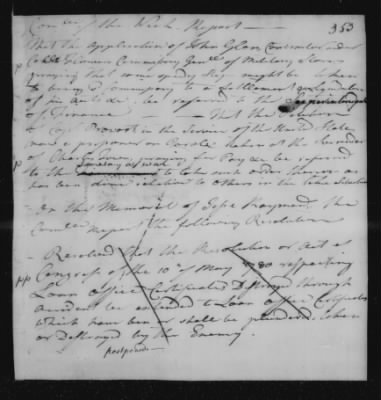 353
Com.ee of the Week Report—
That the application of John Glen Contractor under
Commissary Gen.l of Military Stores
praying that some speedy step might be taken
to bring said commissary to a settlement
of his accounts, be referred to the Superintendent
of Finance — That the Petition
of Cap.t Prevost in the Service of the United States
now a prisoner on Parole taken at the Surrender
of Charles Town praying for Pay be referred
to the Secretary at War to take such order thereon as
has been done relative to others in the like situation
On the Memorial of the
Com.tee report the following Resolution
Resolved that the Resolution or Act of
Congress of the 10th of May 1780 respecting
Loan Office Certificates Destroyed through
accident be extended to Loan Office Certificates
which have been or shall be plundered, taken
or Destroyed by the Enemy.
postponed